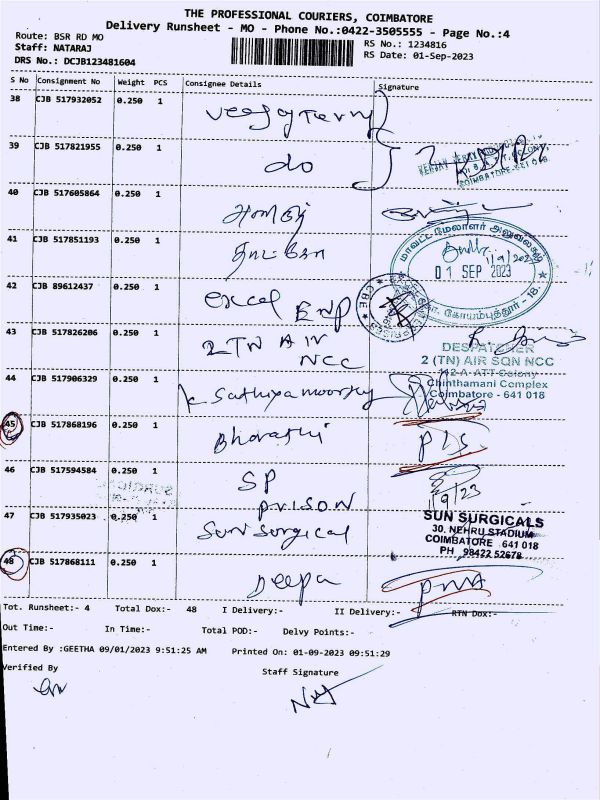 THE PROFESSIONAL COURIERS, COIMBATORE
Delivery Runsheet - MO - Phone No.:0422-3505555 - Page No.:4
Route: BSR RD MO
RS No.: 1234816
Staff: NATARAJ
RS Date: 01-Sep-2023
DRS No.: DCJB123481604
S No Consignment No Weight PCS Consignee Details Signature
38 CJB 517932052 0.250 1
39 CJB 517821955 0.250 1 do
COIMBATORE-641 018.
40 CJB 517605864 0.250 1
41 CJB 517851193 0.250 1
01 SEP 2023
42 CJB 89612437 0.250 1 excel ENP
43 CJB 517826206 0.250 1 2TN AIR NCC
DESPATCHER
2 (TN) AIR SQN NCC
Chinthamani Complex
Coimbatore - 641 018
44 CJB 517906329 0.250 1 K Sathiyamoorthy
45 CJB 517868196 0.250 1 Bharathi
46 CJB 517594584 0.250 1 SP PRISON
1/9/23
47 CJB 517935023 0.250 1 Sun Surgical
SUN SURGICALS
30, NEHRU STADIUM
COIMBATORE 641 018
PH 98422 52678
48 CJB 517868111 0.250 1 Deepa
Tot. Runsheet:- 4 Total Dox:- 48 I Delivery:- II Delivery:- RTN Dox:-
Out Time:- In Time:- Total POD:- Delvy Points:-
Entered By :GEETHA 09/01/2023 9:51:25 AM Printed On: 01-09-2023 09:51:29
Verified By Staff Signature